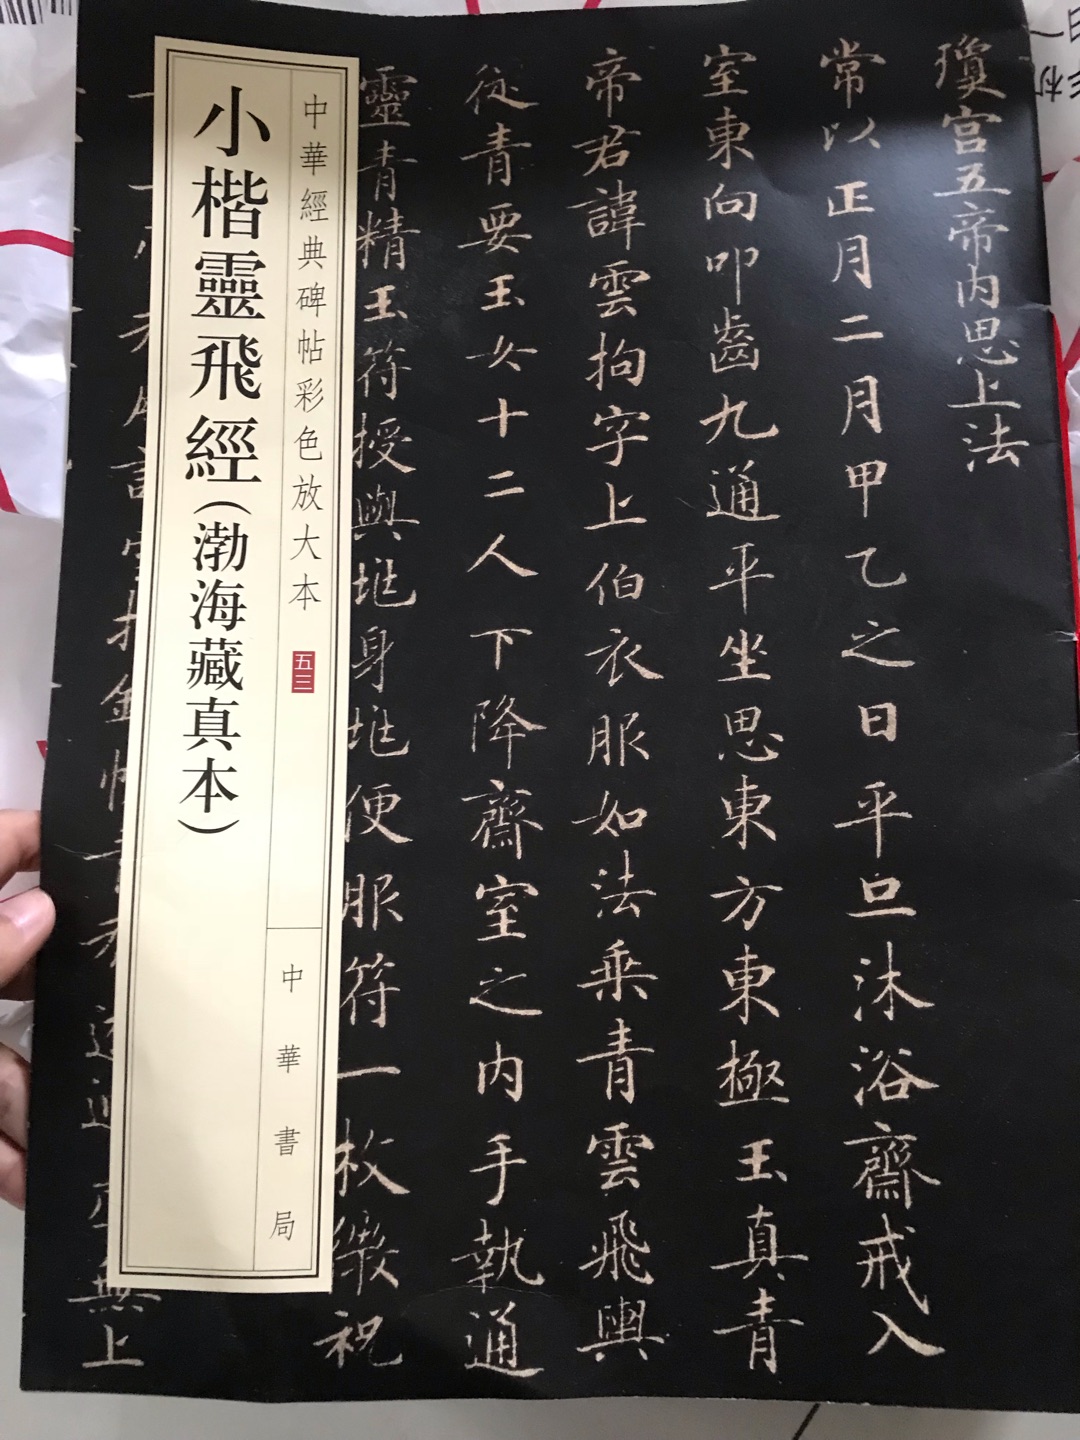 瓊宮五帝内思上法
常以正月二月甲乙之日平旦沐浴齋戒入
室東向叩齒九通平坐思東方東極玉真青
帝君諱雲拘字上伯衣服如法乘青雲飛輿
從青要玉女十二人下降齋室之内手執通
靈青精玉符授與垗身垗便服符一枚微祝
中華經典碑帖彩色放大本
五三
中華書局
小楷靈飛經(渤海藏真本)
無上